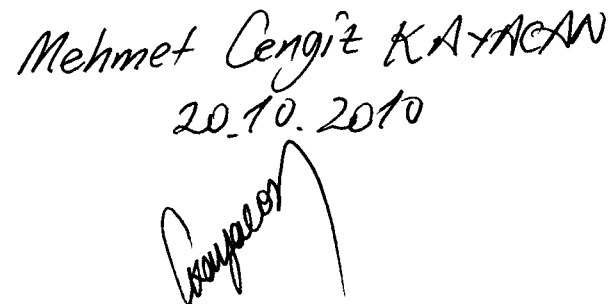 Mehmet Cengiz KAYACAN
20.10.2010